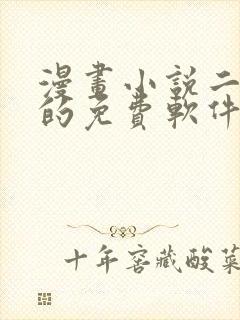 漫畫小說二
的免費軟件
十年窖藏酸菜